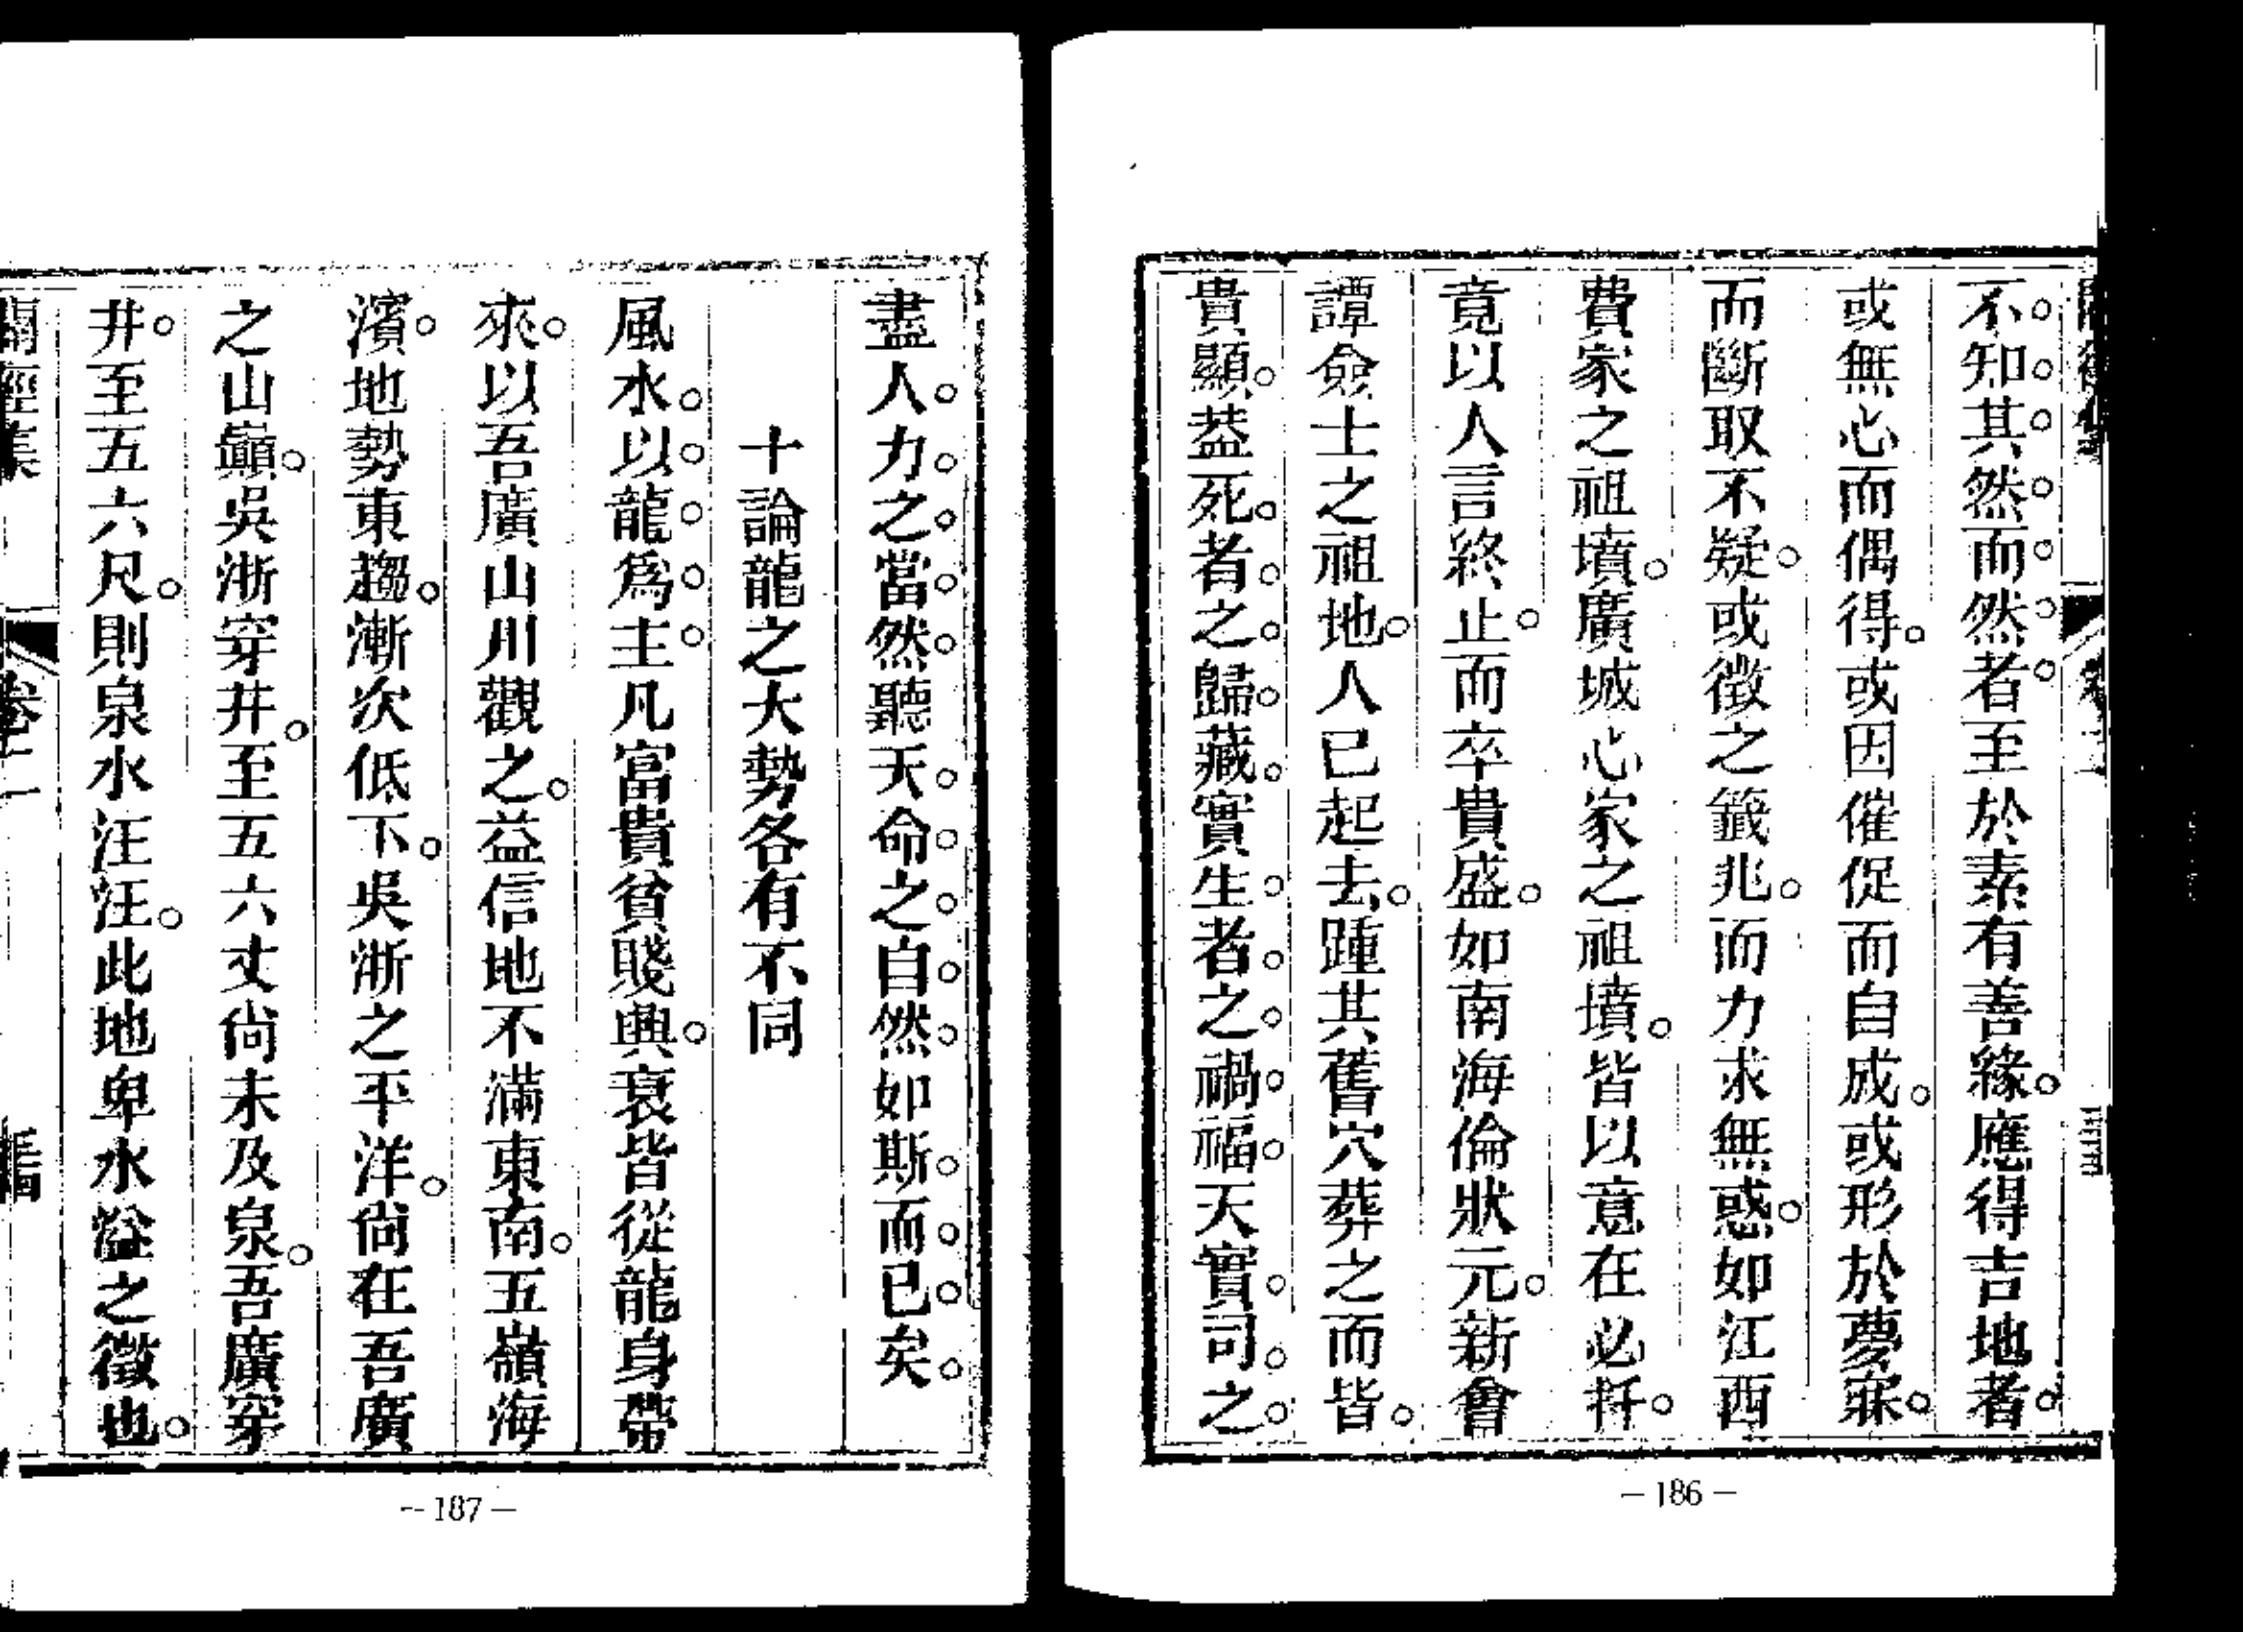 不知其然而然者至於素有善緣應得吉地者
或無心而偶得或因催促而自成或形於夢寐
而斷取不疑或徵之籤兆而力求無惑如江西
費家之祖墳廣城心家之祖墳皆以意在必扦
竟以人言終止而卒貴盛如南海倫狀元新會
譚僉士之祖地人已起去踵其舊穴葬之而皆
貴顯葢死者之歸藏實生者之禍福天實司之
— 186 —
盡人力之當然聽天命之自然如斯而已矣
十論龍之大勢各有不同
風水以龍爲主凡富貴貧賤興衰皆從龍身帶
來以吾廣山川觀之益信地不滿東南五嶺海
濱地勢東趨漸次低下吳浙之平洋尙在吾廣
之山巔吳浙穿井至五六丈尙未及泉吾廣穿
井至五六尺則泉水汪汪此地卑水溢之徵也
卷二
— 187 —